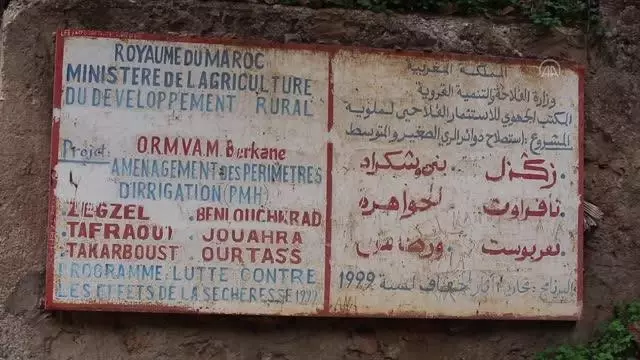 ROYAUME DU MAROC
MINISTERE DE L'AGRICULTURE
DU DEVELOPPEMENT RURAL
Projet: O.R.M.V.A.M. Berkane
AMENAGEMENT DES PERIMETRES
D'IRRIGATION (PMH)
ZEGZEL . BENI OUCHKRAD
TAFRAOUT . JOUAHRA
TAKARBOUST . OURTASS
PROGRAMME LUTTE CONTRE
LES EFFETS DE LA SECHERESSE 1999
المملكة المغربية
وزارة الفلاحة والتنمية القروية
المكتب الجهوي للاستثمار الفلاحي لملوية
المشروع: استصلاح دوائر الري الصغير والمتوسط
زكزل . بني وشكراد
تافراوت . الجواهرة
تعربوست
البرنامج: محاربة آثار الجفاف لسنة 1999
AA